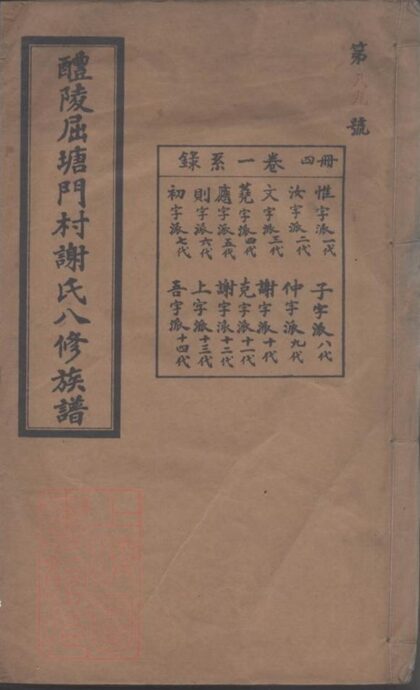 第 號
冊四 卷一系錄
惟字派一代
汝字派二代
文字派三代
字派四代
應字派五代
則字派六代
初字派七代
子字派八代
仲字派九代
謝字派十代
克字派十一代
謝字派十二代
上字派十三代
吾字派十四代
醴陵屈塘門村謝氏八修族譜